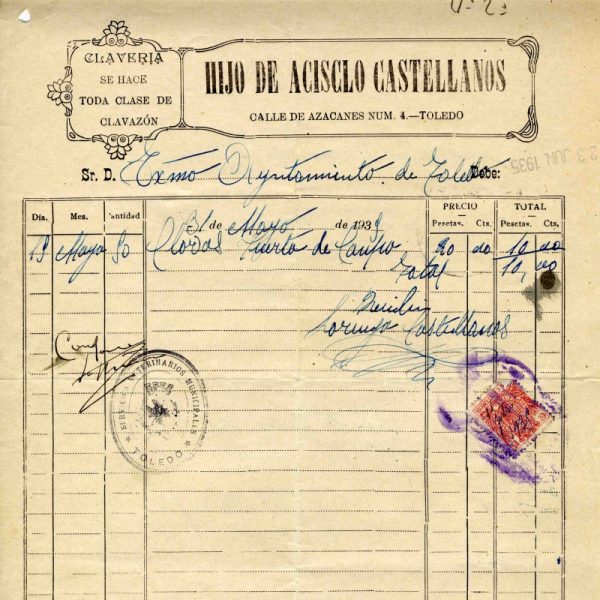 CLAVERIA
SE HACE
TODA CLASE DE
CLAVAZÓN
HIJO DE ACISCLO CASTELLANOS
CALLE DE AZACANES NUM. 4.—TOLEDO
Sr. D. Exmo Ayuntamiento de Toledo Debe:
23 JUN 1935
Día. Mes. Cantidad 31 de Mayo de 193 PRECIO TOTAL
Pesetas. Cts. Pesetas. Cts.
Mayo 50 Clavos Puerta de Campo 20 00 10,00
Total 10,00
Recibí
Lorenzo Castellanos
Conforme
SERVICIOS VETERINARIOS MUNICIPALES
TOLEDO